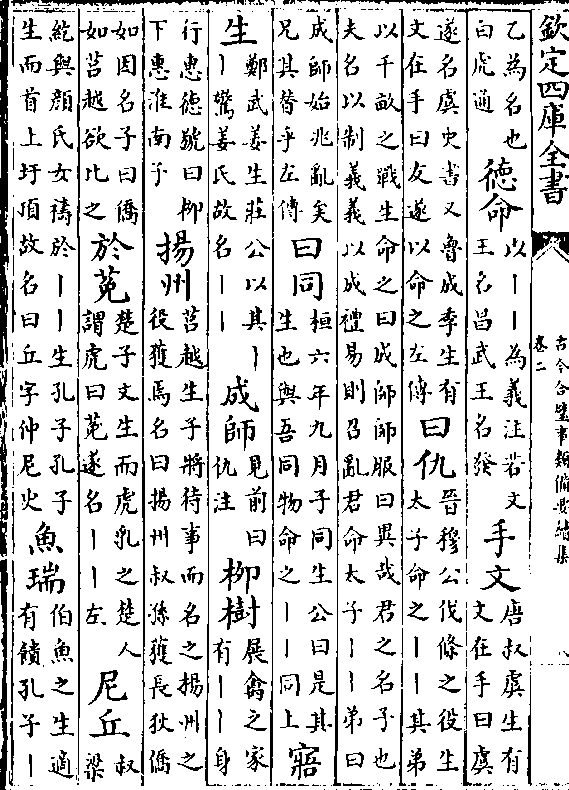 欽定四庫全書
古今合璧事類備要續集
卷二
乙為名也
白虎通
德命
以丨丨為義注若文
王名昌武王名發
手文
唐叔虞生有
文在手曰虞
遂名虞史書又魯成季生有
文在手曰友遂以命之左傳
曰仇
晉穆公伐條之役生
太子命之丨丨其弟
以千畝之戰生命之曰成師師服曰異哉君之名子也
夫名以制義義以成禮易則召亂君命太子丨丨弟曰
成師始兆亂矣
兄其替乎左傳
曰同
桓六年九月子同生公曰是其
生也與吾同物命之丨丨同上
寤
生
鄭武姜生莊公以其丨
丨驚姜氏故名丨丨
成師
見前曰
仇注
柳樹
展禽之家
有丨丨身
行惠德號曰柳
下惠淮南子
揚州
莒越生子將待事而名之揚州之
役獲焉名曰揚州叔孫獲長狄僑
如因名子曰僑
如莒越欲比之
於菟
楚子文生而虎乳之楚人
謂虎曰菟遂名丨丨左
尼丘
叔
梁
紇與顏氏女禱於丨丨生孔子孔子
生而首上圩頂故名曰丘字仲尼火
魚瑞
伯魚之生適
有饋孔子丨